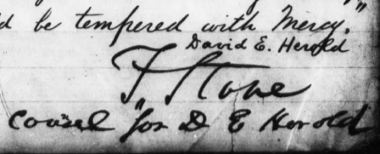 d be tempered with Mercy."
David E. Herold
F Stone
Counsel for D E Herold